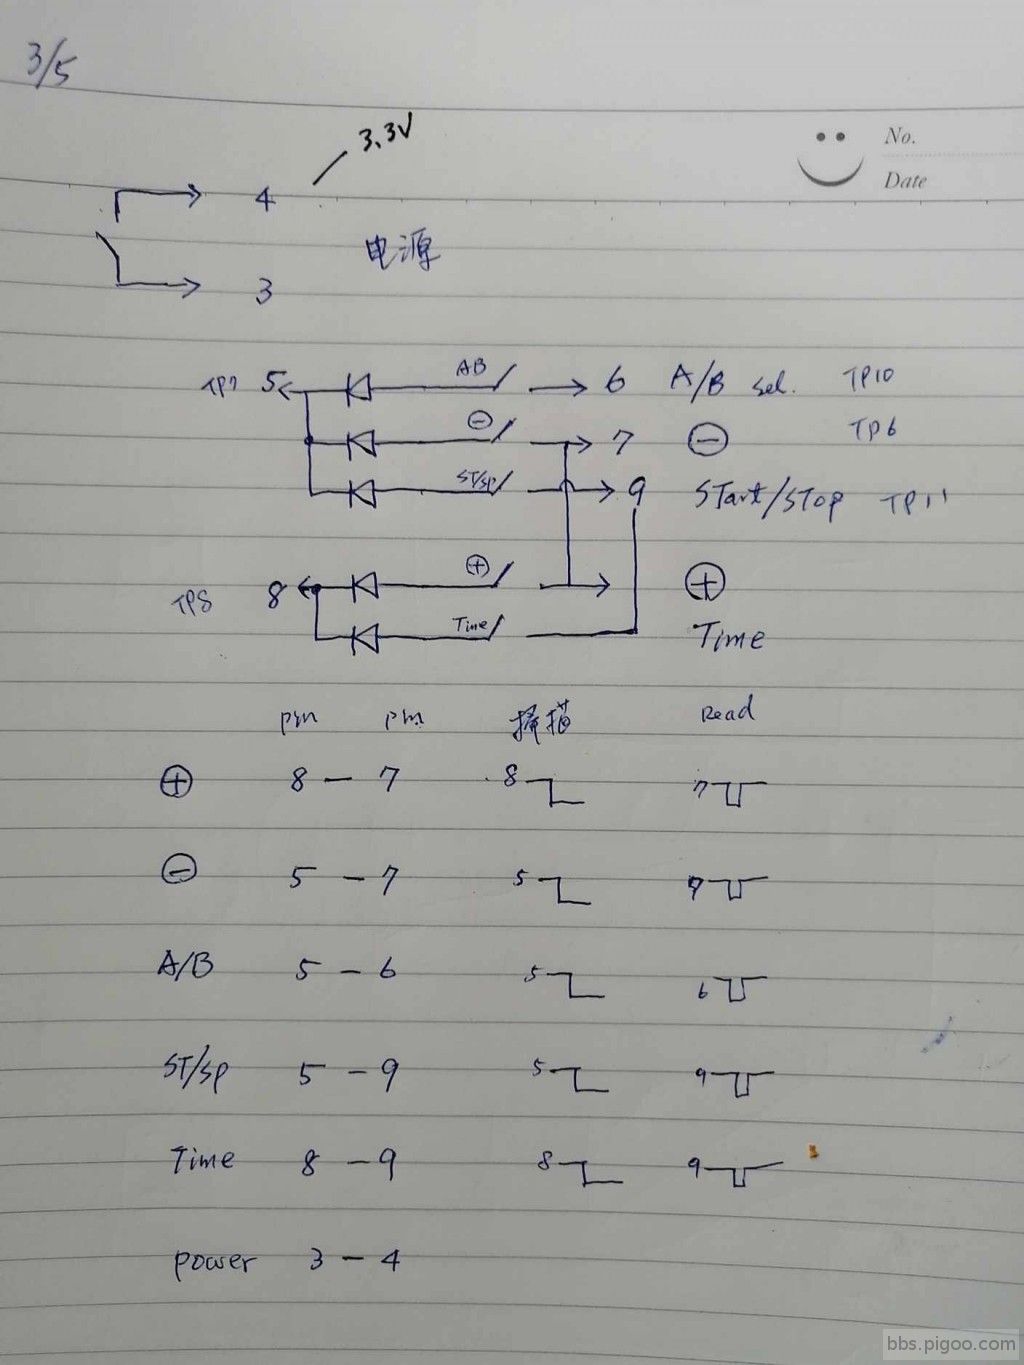 3/5
No.
Date
3.3V
4
电源
3
TP7 5 AB 6 A/B Sel. TP10
⊖ 7 ⊖ TP6
ST/SP 9 START/STOP TP11
TP8 8 ⊕ ⊕
Time Time
pin pin 掃描 Read
⊕ 8 – 7 8 7
⊖ 5 – 7 5 7
A/B 5 – 6 5 6
ST/SP 5 – 9 5 9
Time 8 – 9 8 9
power 3 – 4
bbs.pigoo.com